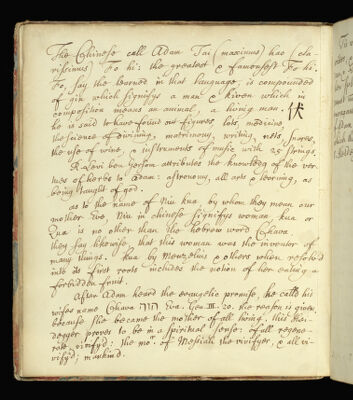 The Chinese call Adam Tai (maximus) hao (cla-
rissimus) Fo hi: the greatest & famousest Fo hi.
Fo, say the learned in that language, is compounded
of gin which signifys a man & kiven which in
composition means an animal, a living man. 伏
he is said to have found out figures, lots, medicine
the science of divining, matrimony, writing, nets, snares,
the use of wine, & instruments of music with 25 strings.
Rabbi ben Gerson attributes the knowledg of the ver-
tues of herbs to Adam: astronomy, all arts & learning, as
being taught of god.
as to the name of Niu kua, by whom they mean our
mother Eve, Niu in chinese signifys woman, kua or
Qua is no other than the hebrew word Chava.
they say likewise, that this woman was the inventor of
many things. kua by Menzelius & others when resolv'd
into its first roots includes the notion of her eating a
forbidden fruit.
After Adam heard the evangelic promise, he calls his
wifes name Chava חוה Eva. Gen. III. 20. the reason is given,
because she became the mother of all living. this Hei-
degger proves to be in a spiritual sense: of all regene-
rate, vivifyd: the mor. of Messiah the vivifyer, & all vi-
vifyd; mankind.